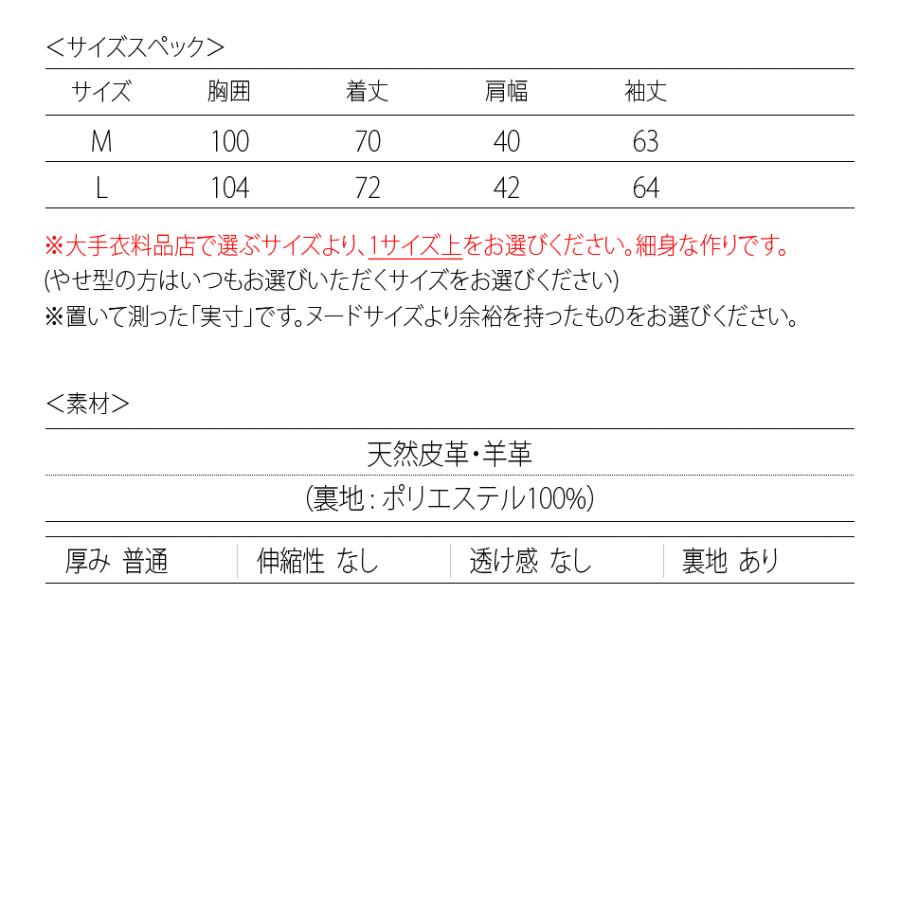 ＜サイズスペック＞
サイズ 胸囲 着丈 肩幅 袖丈
M 100 70 40 63
L 104 72 42 64
※大手衣料品店で選ぶサイズより、1サイズ上をお選びください。細身な作りです。
(やせ型の方はいつもお選びいただくサイズをお選びください)
※置いて測った「実寸」です。ヌードサイズより余裕を持ったものをお選びください。
＜素材＞
天然皮革・羊革
(裏地 : ポリエステル100%)
厚み 普通 伸縮性 なし 透け感 なし 裏地 あり